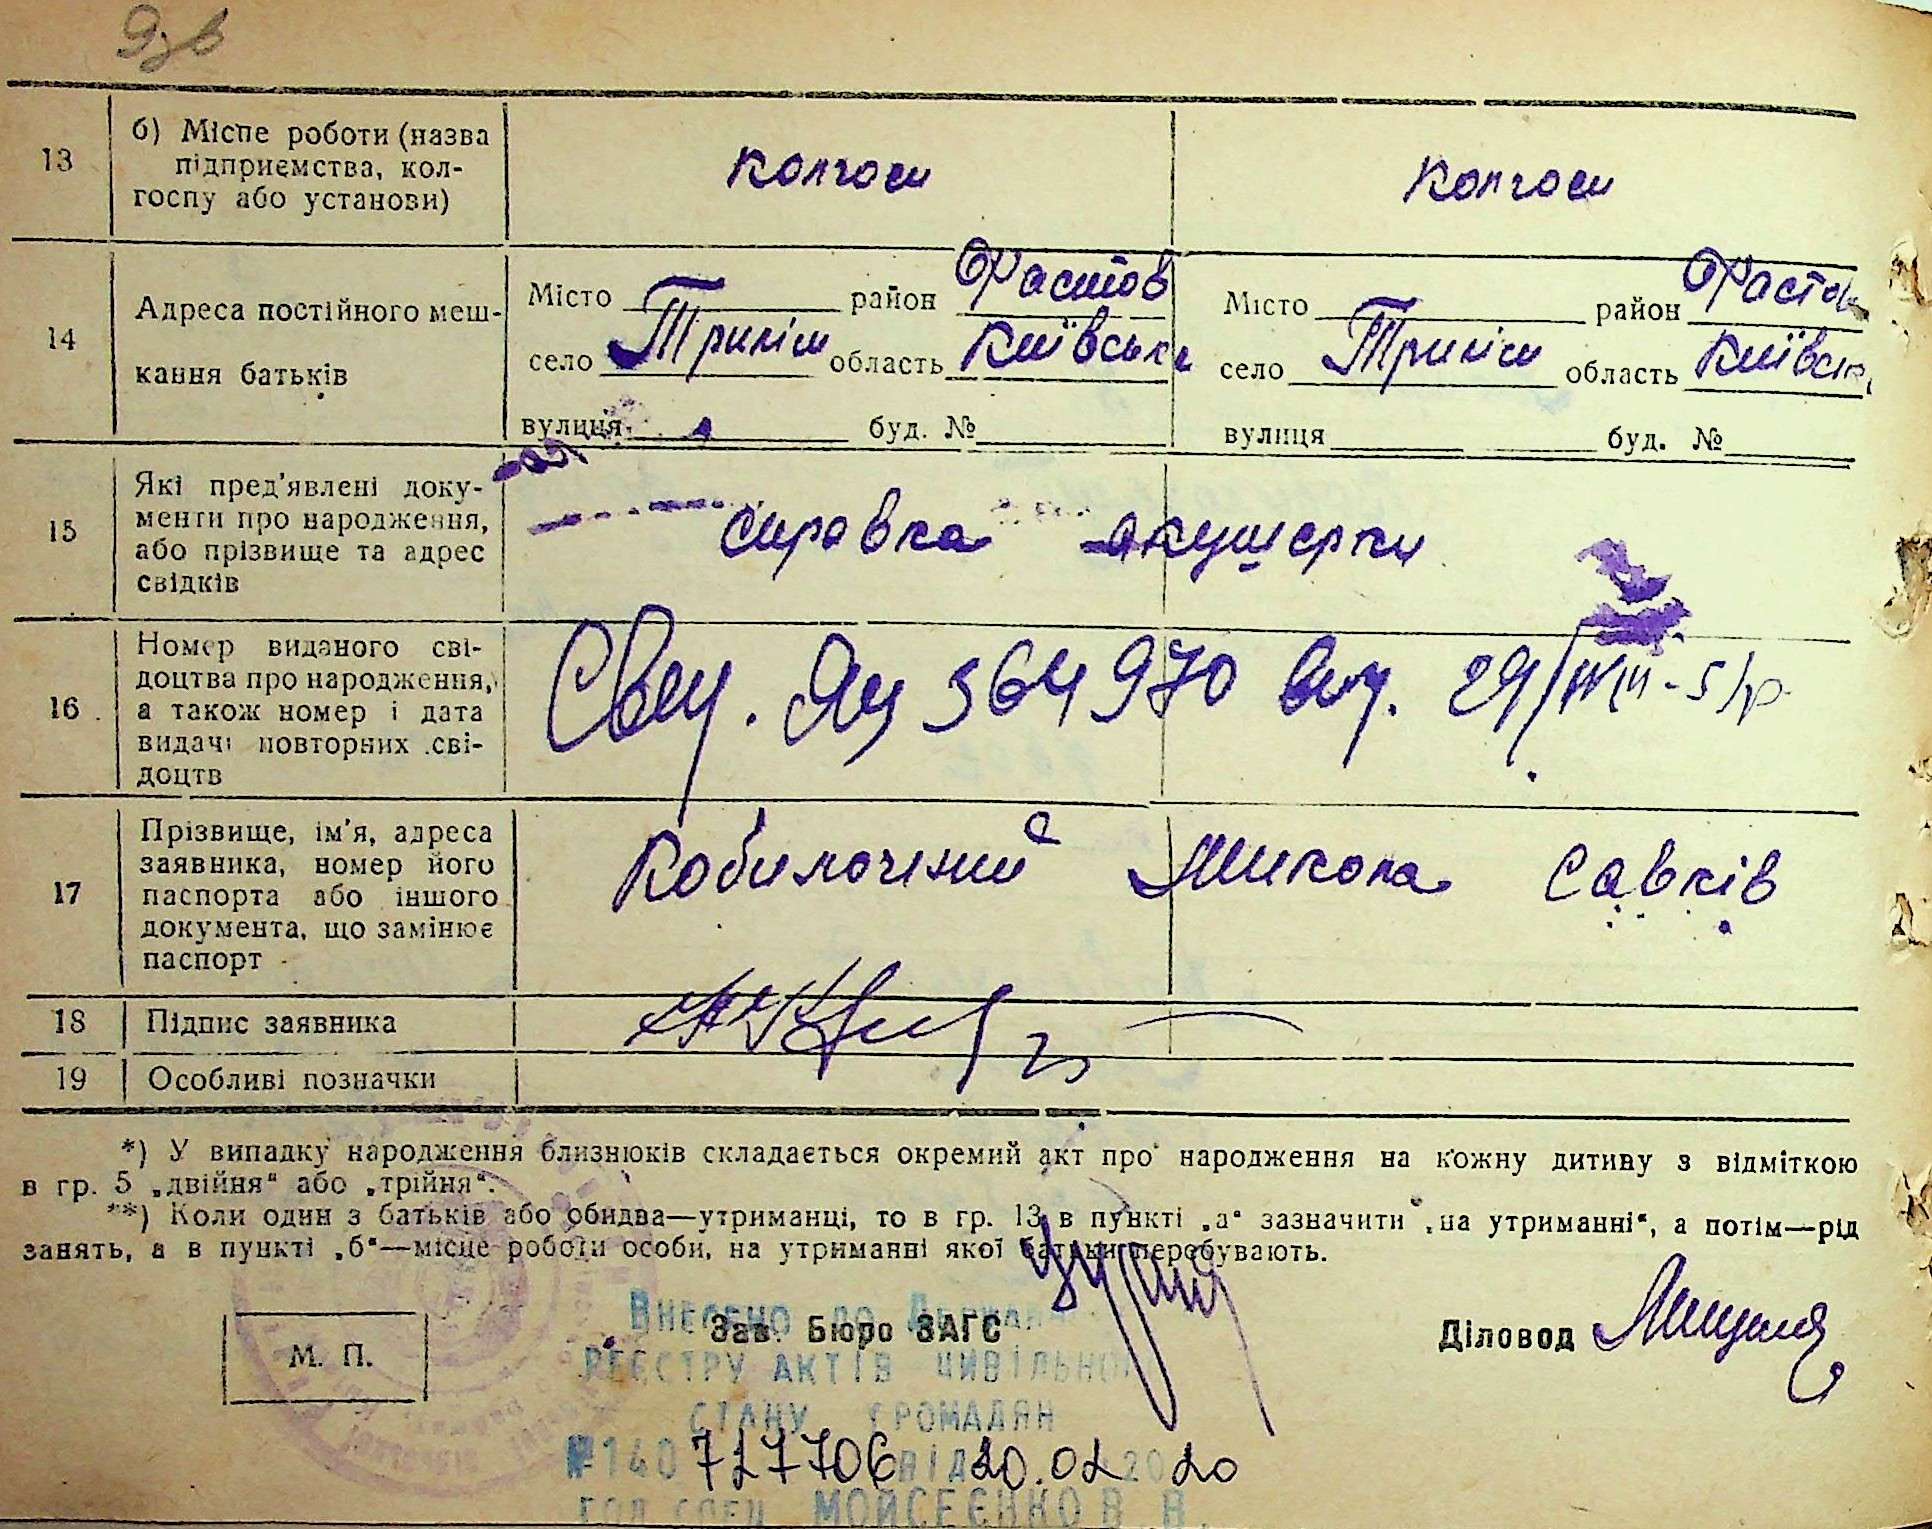 13 б) Місце роботи (назва підприємства, колгоспу або установи) колгосп колгосп
14 Адреса постійного мешкання батьків
Місто район Фастов Місто район Фастов
село Триліси область Київська село Триліси область Київськ
вулиця буд. № вулиця буд. №
15 Які пред'явлені документи про народження, або прізвище та адрес свідків
справка акушерки
16 Номер виданого свідоцтва про народження, а також номер і дата видачі повторних свідоцтв
564970
17 Прізвище, ім'я, адреса заявника, номер його паспорта або іншого документа, що замінює паспорт
Микола Савків
18 Підпис заявника
19 Особливі позначки
*) У випадку народження близнюків складається окремий акт про народження на кожну дитину з відміткою
в гр. 5 „двійня“ або „трійня“.
**) Коли один з батьків або обидва—утриманці, то в гр. 13 в пункті „а“ зазначити „на утриманні“, а потім—рід
занять, а в пункті „б“—місце роботи особи, на утриманні якої батьки перебувають.
М. П.
Зав. Бюро ЗАГС
Діловод
Внесено до Держав
реєстру актів цивільно
стану громадян
№140 727706 від 20.02 2020
гол спец Мойсеєнко В В.